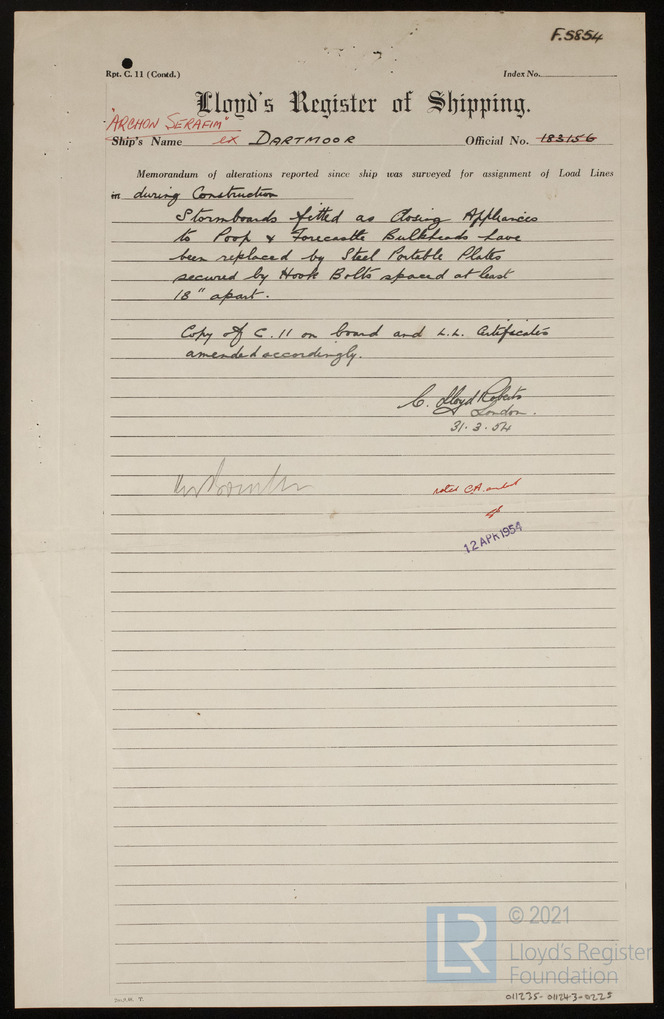 F.5854
Rpt. C. 11 (Contd.)
Index No.
Lloyd's Register of Shipping.
"ARCHON SERAFIM"
Ship's Name ex DARTMOOR Official No. 183156
Memorandum of alterations reported since ship was surveyed for assignment of Load Lines
in during Construction
Stormboards fitted as Closing Appliances
to Poop & Forecastle Bulkheads have
been replaced by Steel Portable Plates
secured by Hook Bolts spaced at least
18" apart.
Copy of C.11 on board and L.L. Certificates
amended accordingly.
C. Lloyd Roberts
London.
31.3.54
noted
12 APR 1954
© 2021
LR
Lloyd's Register
Foundation
011235-011243-0225